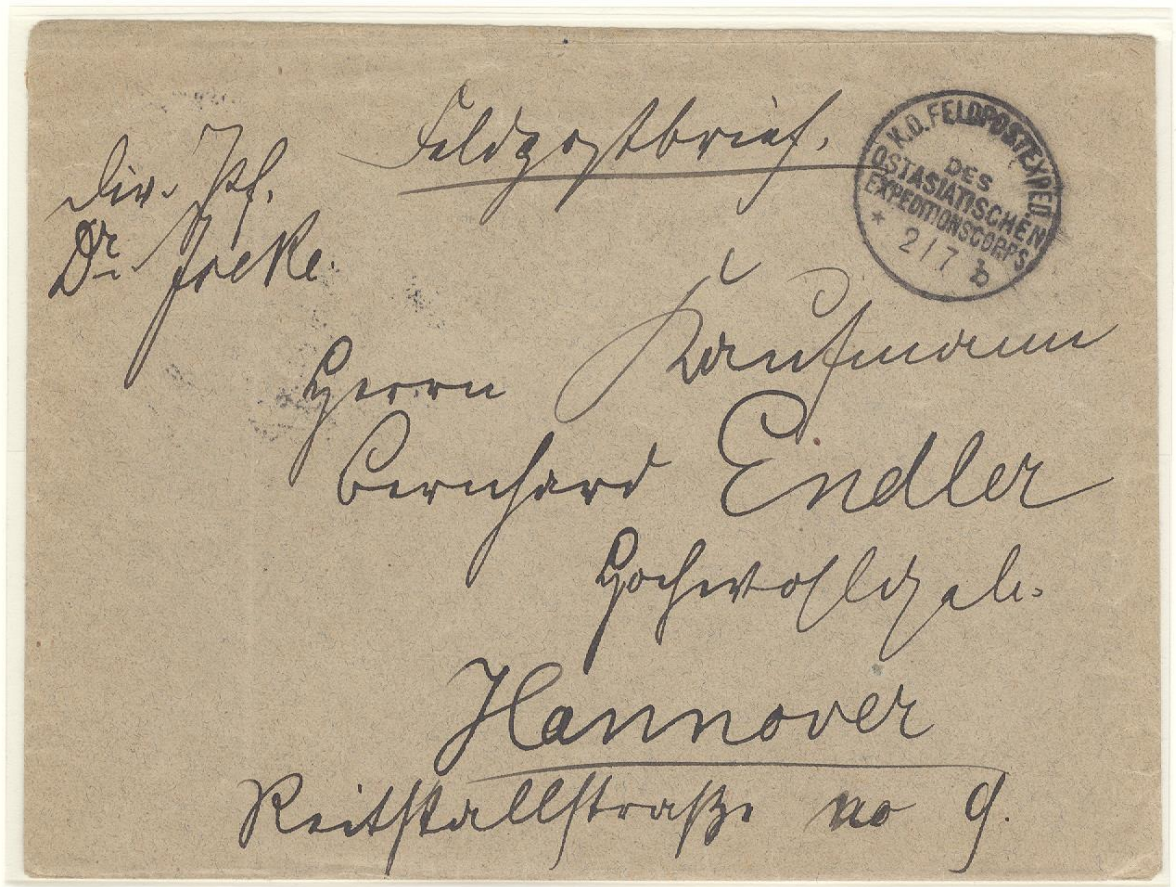 Feldpostbrief.
Div. Pf.
Dr. JrEKE.
K.D. FELDPOSTEXPED.
DES
OSTASIATISCHEN
EXPEDITIONSCORPS
* 2/7 b
Herrn Kaufmann
Bernhard Endler
Hochwohlgeb.
Hannover
Reitstallstraße no 9.